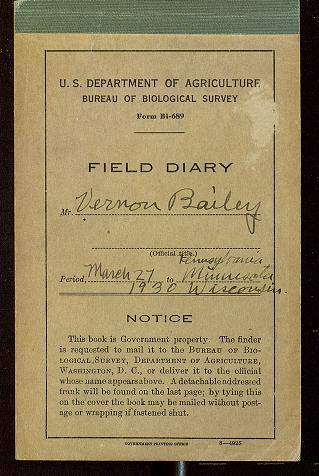 U. S. DEPARTMENT OF AGRICULTURE
BUREAU OF BIOLOGICAL SURVEY
Form Bi-689
FIELD DIARY
Mr. Vernon Bailey
(Official title.)
Pennsylvania
Period, March 27 to Minnesota
1930 Wisconsin.
NOTICE
This book is Government property. The finder
is requested to mail it to the BUREAU OF BIO-
LOGICAL SURVEY, DEPARTMENT OF AGRICULTURE,
WASHINGTON, D. C., or deliver it to the official
whose name appears above. A detachable addressed
frank will be found on the last page; by tying this
on the cover the book may be mailed without post-
age or wrapping if fastened shut.
GOVERNMENT PRINTING OFFICE 8—4925